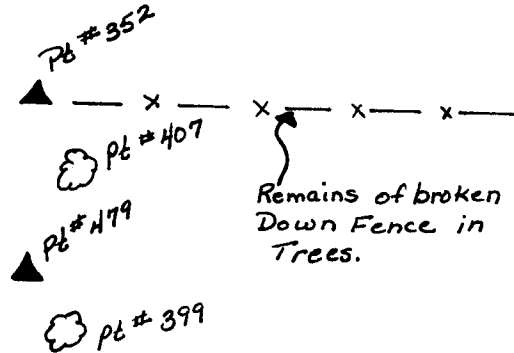 Pt #352
Pt #407
Remains of broken
Down Fence in
Trees.
Pt #479
Pt #399